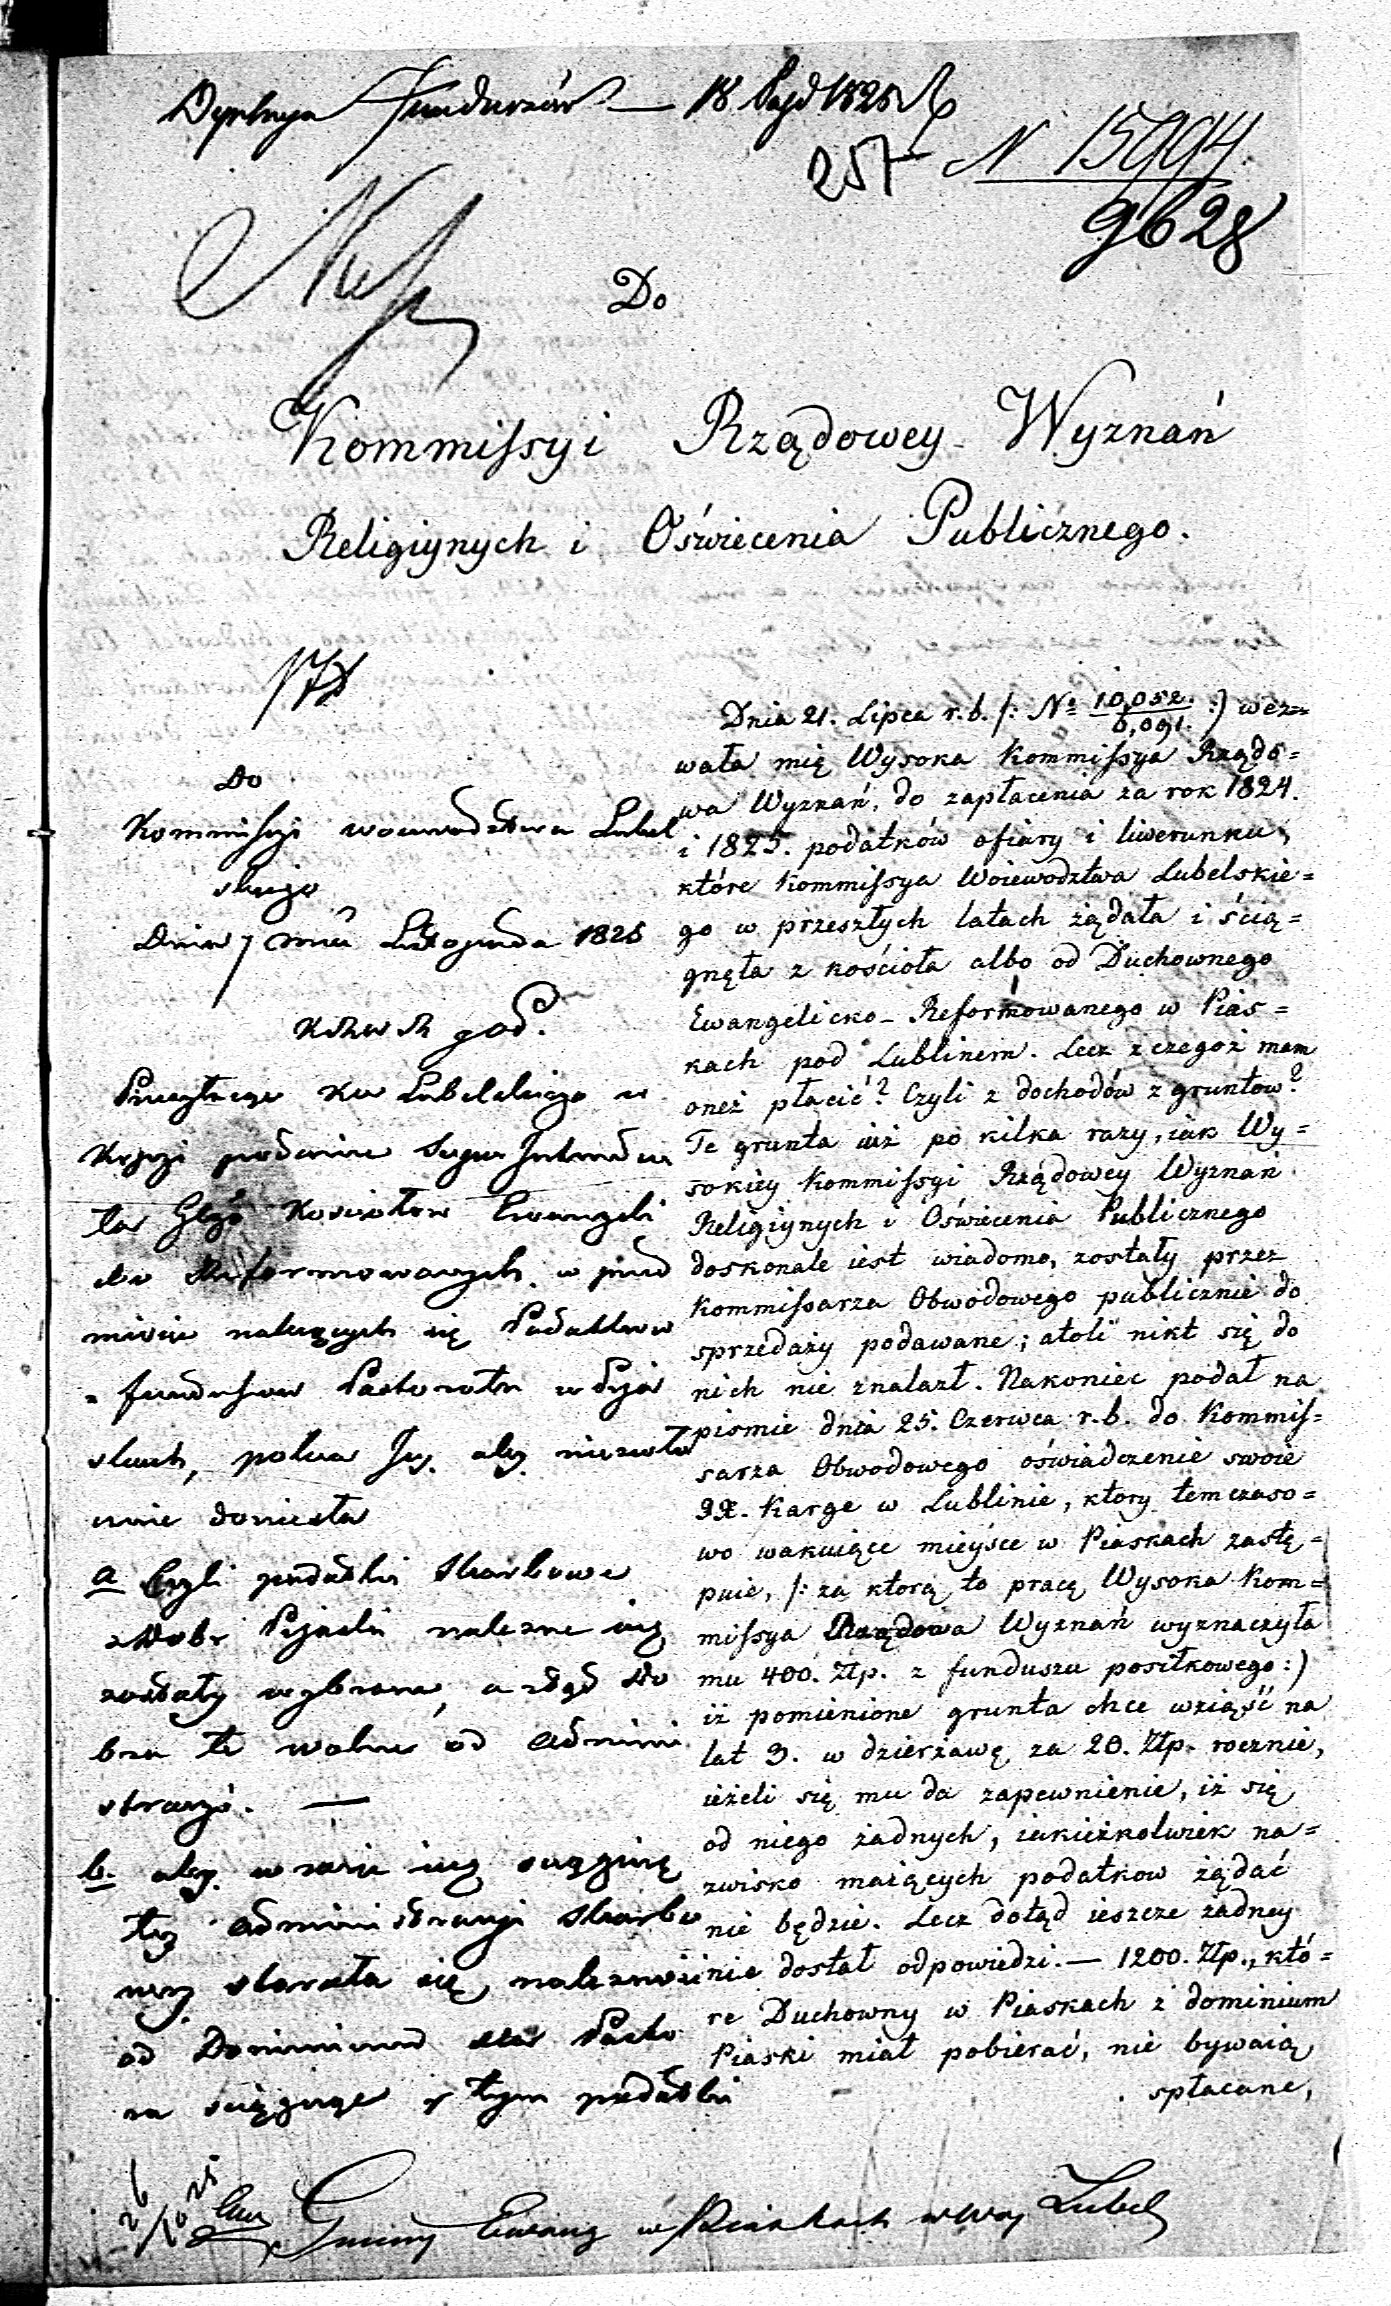 Funduszów — 18 1825
257 N 15994
9628
Do
Kommissyi Rządowey Wyznań
Religiynych i Oświecenia Publicznego.
Do
Kommissyi Woiewodztwa Lubel
skiego
Dnia 7 mca Listopada 1825
Przesyłając Kw Lubelskiego w
Kopji podanie Super Intenden
ta Glgo Kosciołów Ewangeli
cko Reformowanych w przed
miocie należących się Podatków
z funduszow Pastoratu w Pia
skach, poleca Jey aby niezwło
cznie doniosła
a Czyli podatki Skarbowe
z Dobr Piaski należne iuż
zostały wybrane, a ztąd Do
bra te wolne od Admini
stracyi. —
b. aby w razie iuż
tey Administracyi Skarbo
wey starała się należność
od Dominium dla Pasto
ra i tym podatki
Dnia 21. Lipca r. b. /: Nº 10,052./6,091. :/ wez=
wała mię Wysoka Kommissya Rządo=
wa Wyznań, do zapłacenia za rok 1824.
i 1825. podatków ofiary i liwerunku,
które Kommissya Woiewodztwa Lubelskie=
go w przeszłych latach żądała i ścią=
gnęła z kościoła albo od Duchownego
Ewangelicko-Reformowanego w Pias=
kach pod Lublinem. Lecz z czegoż mam
oneż płacić? Czyli z dochodów z gruntow?
Te grunta iuż po kilka razy, iak Wy=
sokiey Kommissyi Rządowey Wyznań
Religiynych i Oświecenia Publicznego
doskonale iest wiadomo, zostały przez
Kommissarza Obwodowego publicznie do
sprzedaży podawane; atoli nikt się do
nich nie znalazł. Nakoniec podał na
pismie dnia 25. Czerwca r. b. do Kommis=
sarza Obwodowego oświadczenie swoie
JX. Karge w Lublinie, ktory temczaso=
wo wakuiące mieysce w Piaskach zastę=
puie, /: za ktorą to pracę Wysoka Kom=
missya Rządowa Wyznań wyznaczyła
mu 400. Złp. z funduszu posiłkowego :/
iż pomienione grunta chce wziąść na
lat 3. w dzierżawę za 20. Złp. rocznie,
ieżeli się mu da zapewnienie, iż się
od niego żadnych, iakieżkolwiek na=
zwisko maiących podatkow żądać
nie będzie. Lecz dotąd ieszcze żadney
nie dostał odpowiedzi. — 1200. Złp., któ=
re Duchowny w Piaskach z dominium
Piaski miał pobierać, nie bywaią
spłacane,
Gminy Ewang w Piaskach w Woj Lubel